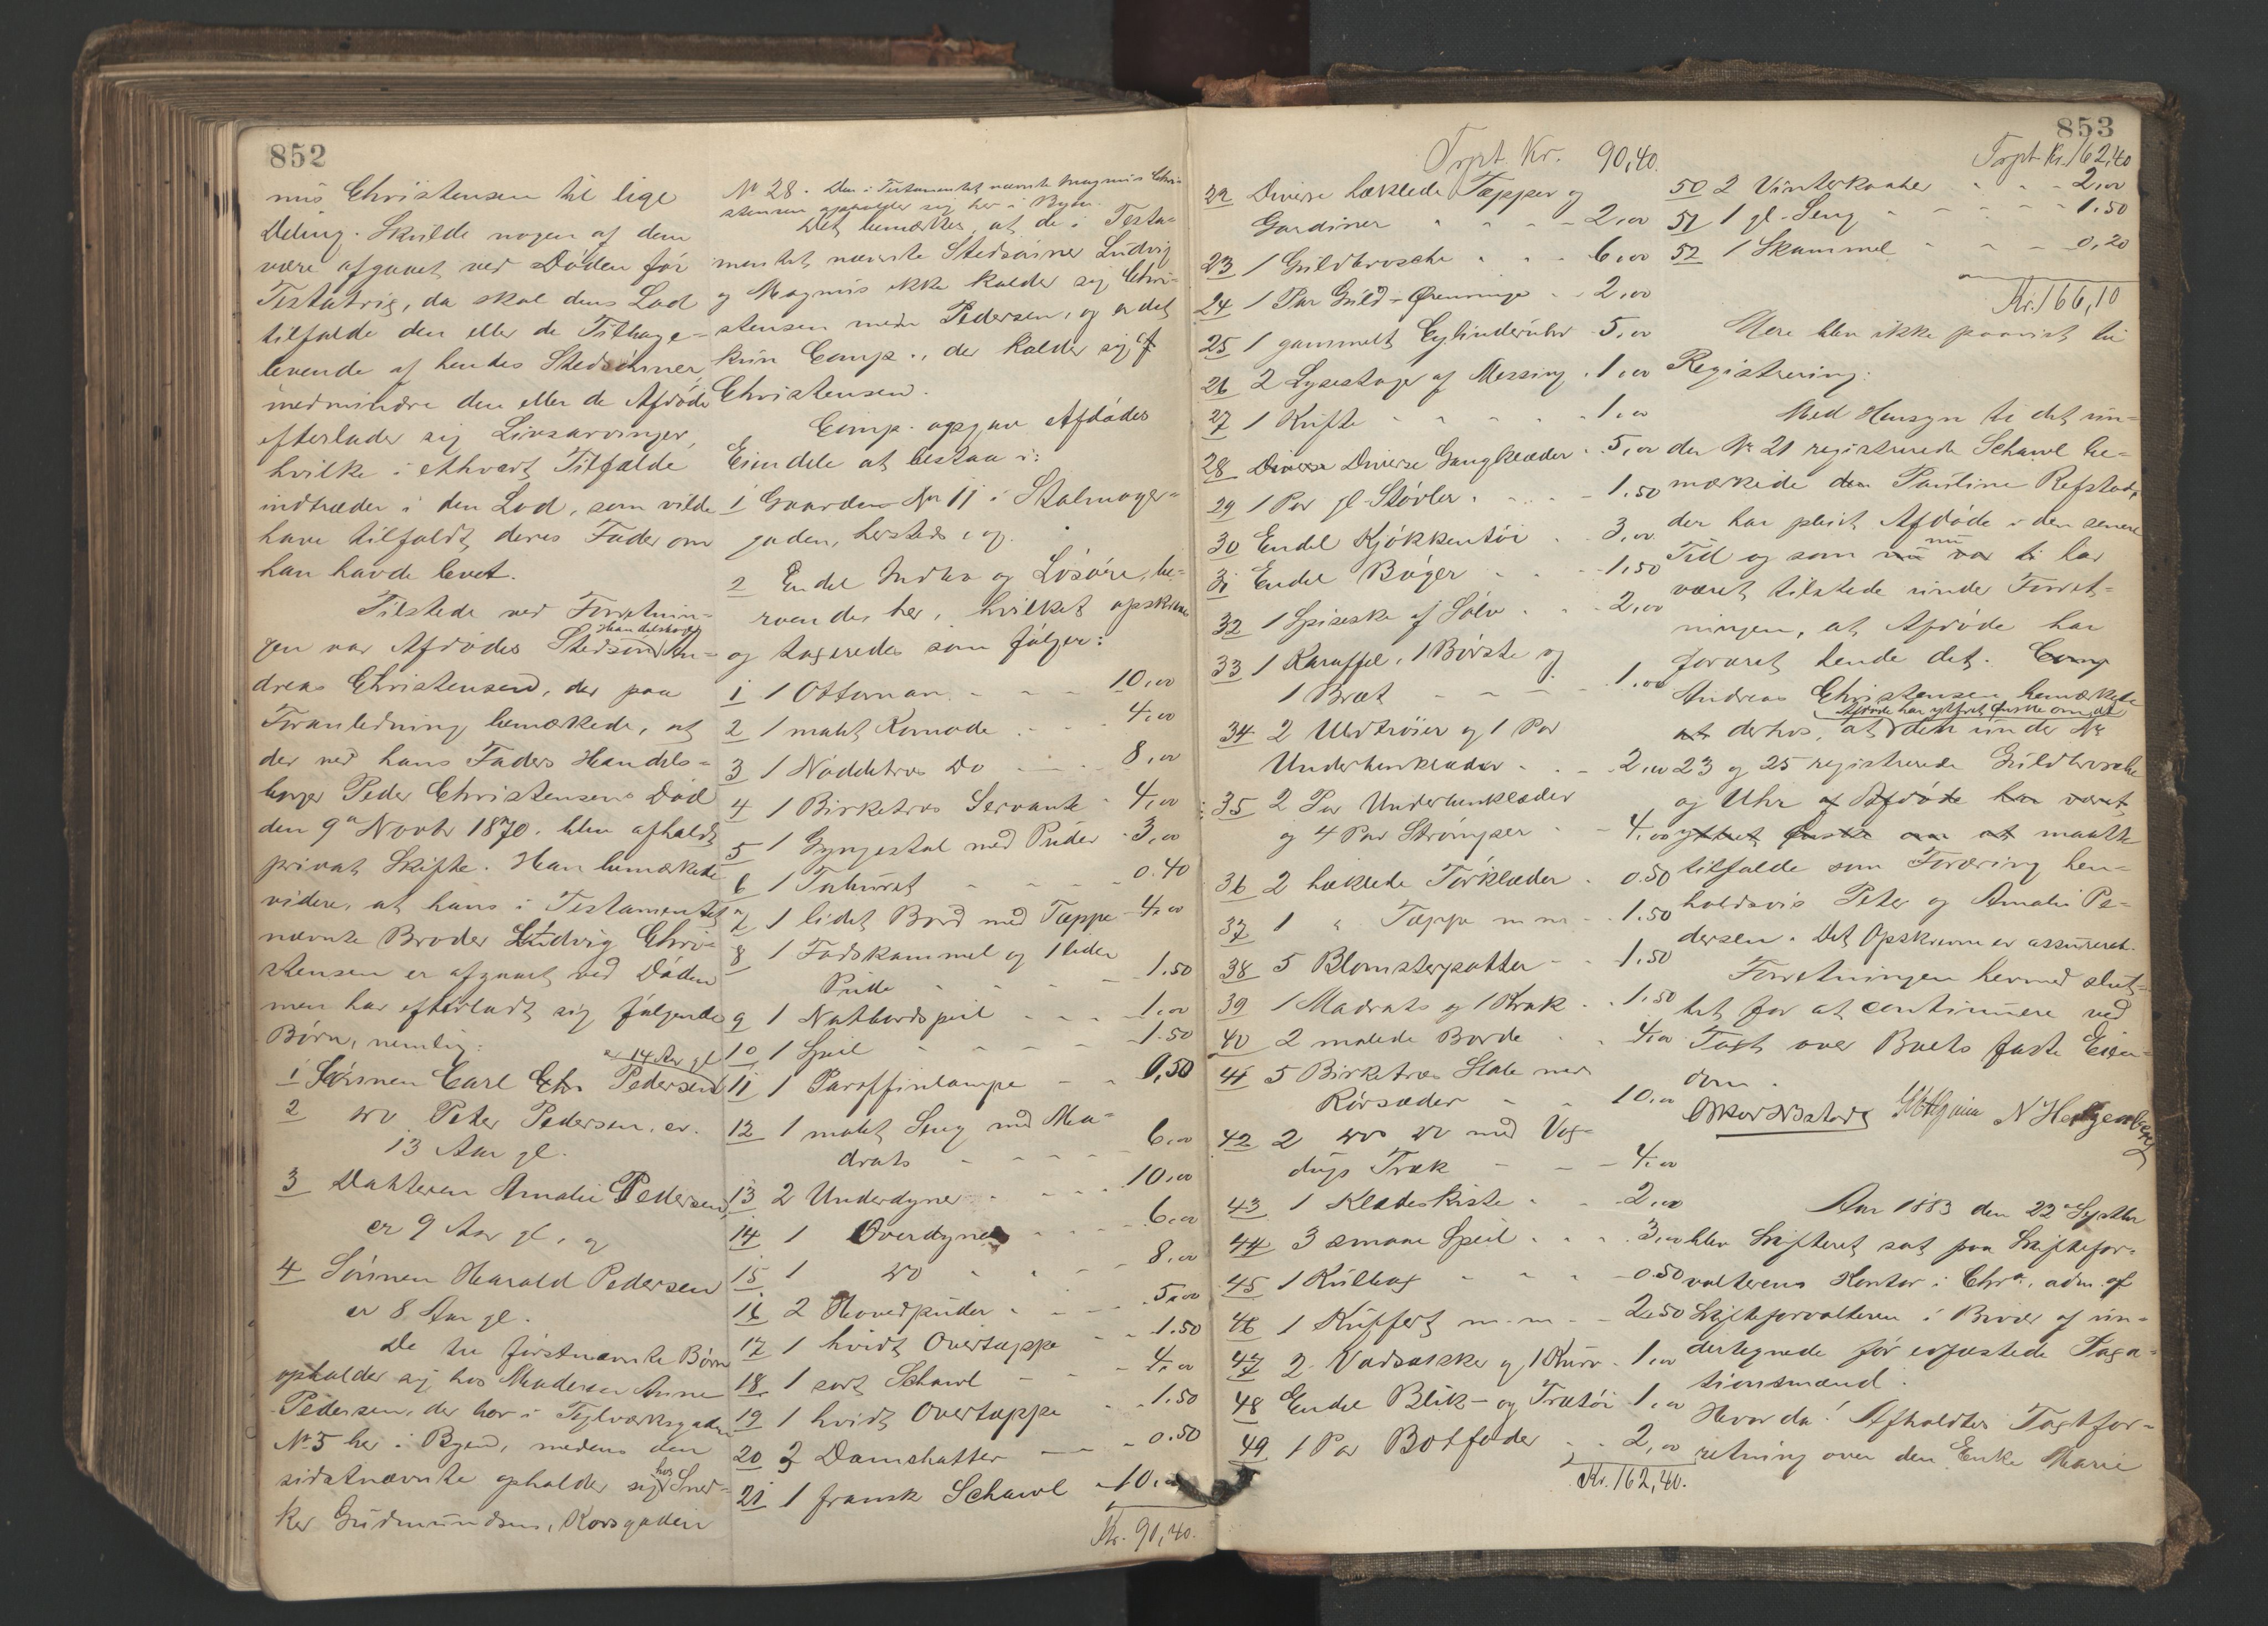 852
nus Christensen til lige
Deling. Skulde nogen af dem
være afgaaet ved Døden før
Testatrix, da skal dens Lod
tilfalde den eller de Tilbage-
levende af hendes Stedsønner,
medmindre den eller de Afdøde
efterlader sig Livsarvinger,
hvilke i ethvert Tilfælde
indtræder i den Lod, som vilde
have tilfaldt deres Fader om
han havde levet.
Tilstede ved Forretnin-
gen var Afdødes Stedsøn Handelsborger An-
dreas Christensen, der paa
Foranledning bemærkede, at
der ved hans Faders Handels-
borger Peder Christensens Død
den 9de Novbr 1870. blev afholdt
privat Skifte. Han bemærkede
videre, at hans i Testamentet
nævnte Broder Ludvig Chri-
stensen er afgaaet ved Døden
men har efterladt sig følgende
Børn, nemlig:
1 Sønnen Carl Chr Pedersen er 14 Aar gl
2 do Peter Pedersen, er
13 Aar gl.
3 Datteren Amalie Pedersen,
er 9 Aar gl, og
4 Sønnen Harald Pedersen
er 8 Aar gl.
De tre førstnævnte Børn
opholder sig hos Moderen Anne
Pedersen, der bor i Teglværksgaden
No 5 her i Byen, medens den
sidstnævnte opholder sig hos Sned-
ker Gudmundsen, Korsgaden
No 28. Den i Testamentet nævnte Magnus Chri-
stensen opholder sig her i Byen.
Det bemærkes, at de i Testa-
mentet nævnte Stedsønner Ludvig
og Magnus ikke kalder sig Chri-
stensen men Pedersen, og er det
kun Comp., der kalder sig
Christensen.
Comp. opgav Afdødes
Eiendele at bestaa i:
1 Gaarden No 11 i Stalmager-
gaden, hersteds, og
2 Endel Indbo og Løsøre, be-
roendes her, hvilket opskreves
og taxeredes som følger:
1 1 Ottoman - - - 10,00
2 1 malet Komode - - 4,00
3 1 Nøddetræs Do - - 8,00
4 1 Birketræs Servante - 4,00
5 1 Gyngestol med Puder - 3,00
6 1 Taburet - - - - 0.40
7 1 lidet Bord med Tæppe - 4,00
8 1 Fodskammel og 1 liden
Pude - - - - 1.50
9 1 Natbordspeil - - - 1,00
10 1 Speil - - - - - 1.50
11 1 Paraffinlampe - - 0,50
12 1 malet Seng med Ma-
drats - - - - 6,00
13 2 Underdyner - - - 10,00
14 1 Overdyne - - 6,00
15 1 do - - - 8,00
16 2 Hovedpuder - - - 5,00
17 1 hvidt Overtæppe - - 1.50
18 1 sort Schawl - - - 4,00
19 1 hvidt Overtæppe - 1.50
20 2 Damehatter - - - 0.50
21 1 fransk Schawl - 10,00
Kr. 90,40.
853
Trpt. Kr. 90,40.
22 Diverse hæklede Tæpper og
Gardiner - - - 2,00
23 1 Guldbrosche - - - 6,00
24 1 Par Guld-Ørenringe - - 2,00
25 1 gammelt Cylinderuhr - 5,00
26 2 Lysestager af Messing - 1,00
27 1 Kufte - - - - - 1,00
28 Diverse Diverse Gangklæder - 5,00
29 1 Par gl. Støvler - - - 1,50
30 Endel Kjøkkentøi - 3,00
31 Endel Bøger - - - 1,50
32 1 Spiseske af Sølv - - 2,00
33 1 Karaffel, 1 Børste og
1 Bræt - - - - 1,00
34 2 Uldtrøier og 1 Par
Underbenklæder - - - 2,00
35 2 Par Underbenklæder
og 4 Par Strømper - - 4,00
36 2 hæklede Tørklæder - 0.50
37 1 " Tæppe m m - - 1.50
38 5 Blomsterpotter - - 1.50
39 1 Madrats og 1 Krak - - 1.50
40 2 malede Borde - - 4,00
41 5 Birketræs Stole med
Rørsæder - - 10,00
42 2 do do med Vox-
dugs Træk - - - 4,00
43 1 Klædeskiste - - 2,00
44 3 smaae Speil - - - 3,00
45 1 Kulbox - - - - 0.50
46 1 Kuffert m.m. - - 2.50
47 2 Vadsække og 1 Kurv - 1,00
48 Endel Blik- og Trætøi 1,00
49 1 Par Botfoder - - 2,00
Kr. 162,40.
Trpt Kr. 162,40
50 2 Vinterkaaber - - - 2,00
51 1 gl. Seng - - - - - 1.50
52 1 Skammel - - - 0,20
Kr. 166,10
Mere blev ikke paavist til
Registrering.
Med Hensyn til det un-
der No 21 registrerede Schawl be-
mærkede den Pauline Refstad,
der har pleiet Afdøde i den senere
Tid og som nu var ti nu har
været tilstede under Forret-
ningen, at Afdøde har
foræret hende det. Comp
Andreas Christensen bemærkede
at derhos, at Afdøde har yttret Ønske om, at den under No
23 og 25 registrerede Guldbrosche
og Uhr af Afdøde har været
yttret Ønske om at maatte
tilfalde som Foræring hen-
holdsvis Peter og Amalie Pe-
dersen. Det Opskrevne er assureret.
Forretningen hermed slut-
tet for at continuere ved
Taxt over Boets faste Eien-
dom.
Aar 1883 den 22de Septbr
blev Skifteret sat paa Skiftefor-
valterens Kontor i Chra., adm. af
Skifteforvalteren i Bivær af un-
dertegnede før eedfæstede Taxa-
tionsmænd.
Hvor da: Afholdtes Taxtfor-
retning over den Enke Marie